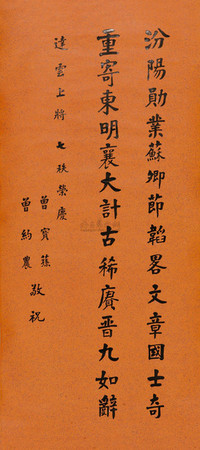 汾陽勛業蘇卿節韜畧文章國士奇
重寄東明襄大計古稀賡晋九如辭
達雲上將 七秩榮慶
曾寶蓀
曾約農
敬祝